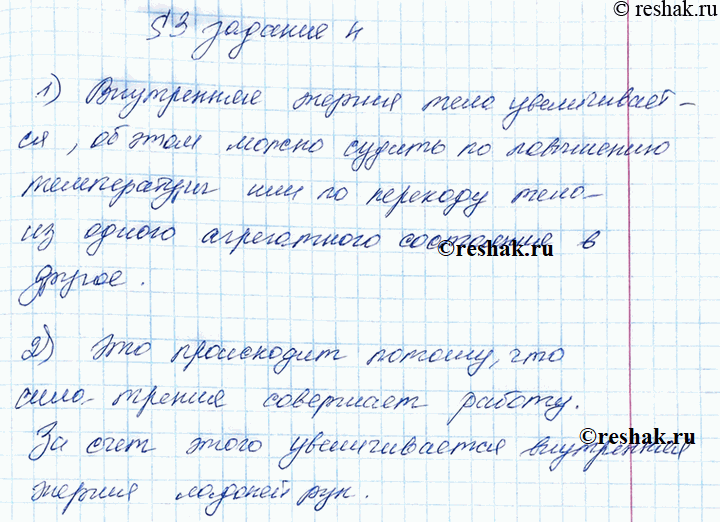 © reshak.ru
§3 задание 4
1) Внутренняя энергия тела увеличивает-
ся, об этом можно судить по повышению
температуры или по переходу тела
из одного агрегатного состояния в
©reshak.ru
другое.
2) Это происходит потому, что
сила трения совершает работу.
©reshak.ru
За счет этого увеличивается внутренняя
энергия ладоней рук.